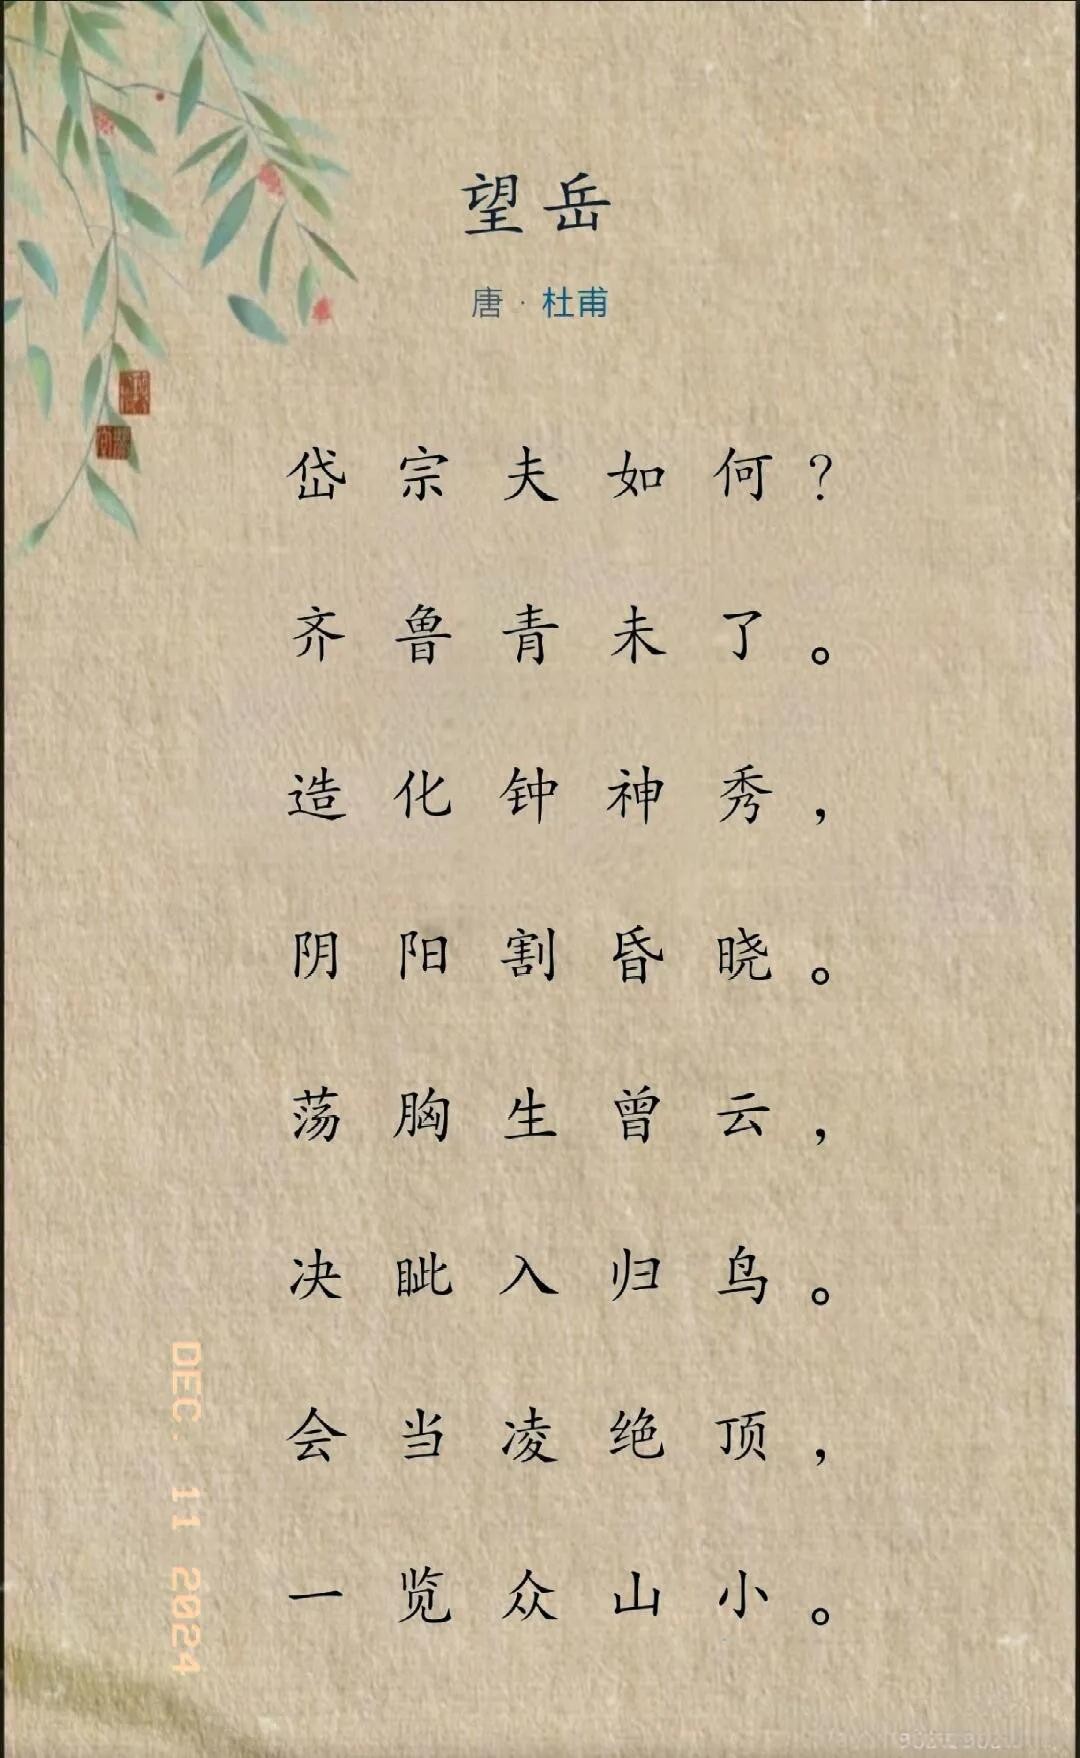 望岳
唐·杜甫
岱宗夫如何？
齐鲁青未了。
造化钟神秀，
阴阳割昏晓。
荡胸生曾云，
决眦入归鸟。
会当凌绝顶，
一览众山小。
DEC. 11 2024